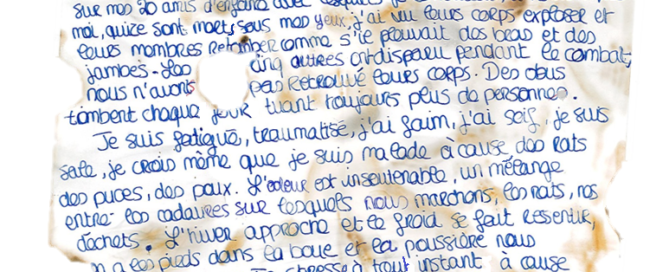 sur mes 20 amis d'enfance avec lesquels
moi, quize sont morts sous mes yeux, j'ai vu leurs corps exploser et
leurs membres Retomber comme s'il pleuvait des bras et des
jambes. Les cinq autres ont disparu pendant le combat,
nous n'avons pas Retrouvé leurs corps. Des obus
tombent chaque jour tuant toujours plus de personnes.
Je suis fatigué, traumatisé, j'ai faim, j'ai soif, je suis
sale, je crois même que je suis malade à cause des rats
des puces, des poux. L'odeur est insoutenable, un mélange
entre les cadavres sur lesquels nous marchons, les rats, nos
déchets. L'hiver approche et le froid se fait ressentir,
on a les pieds dans la boue et la poussière nous
stresse à tout instant à cause